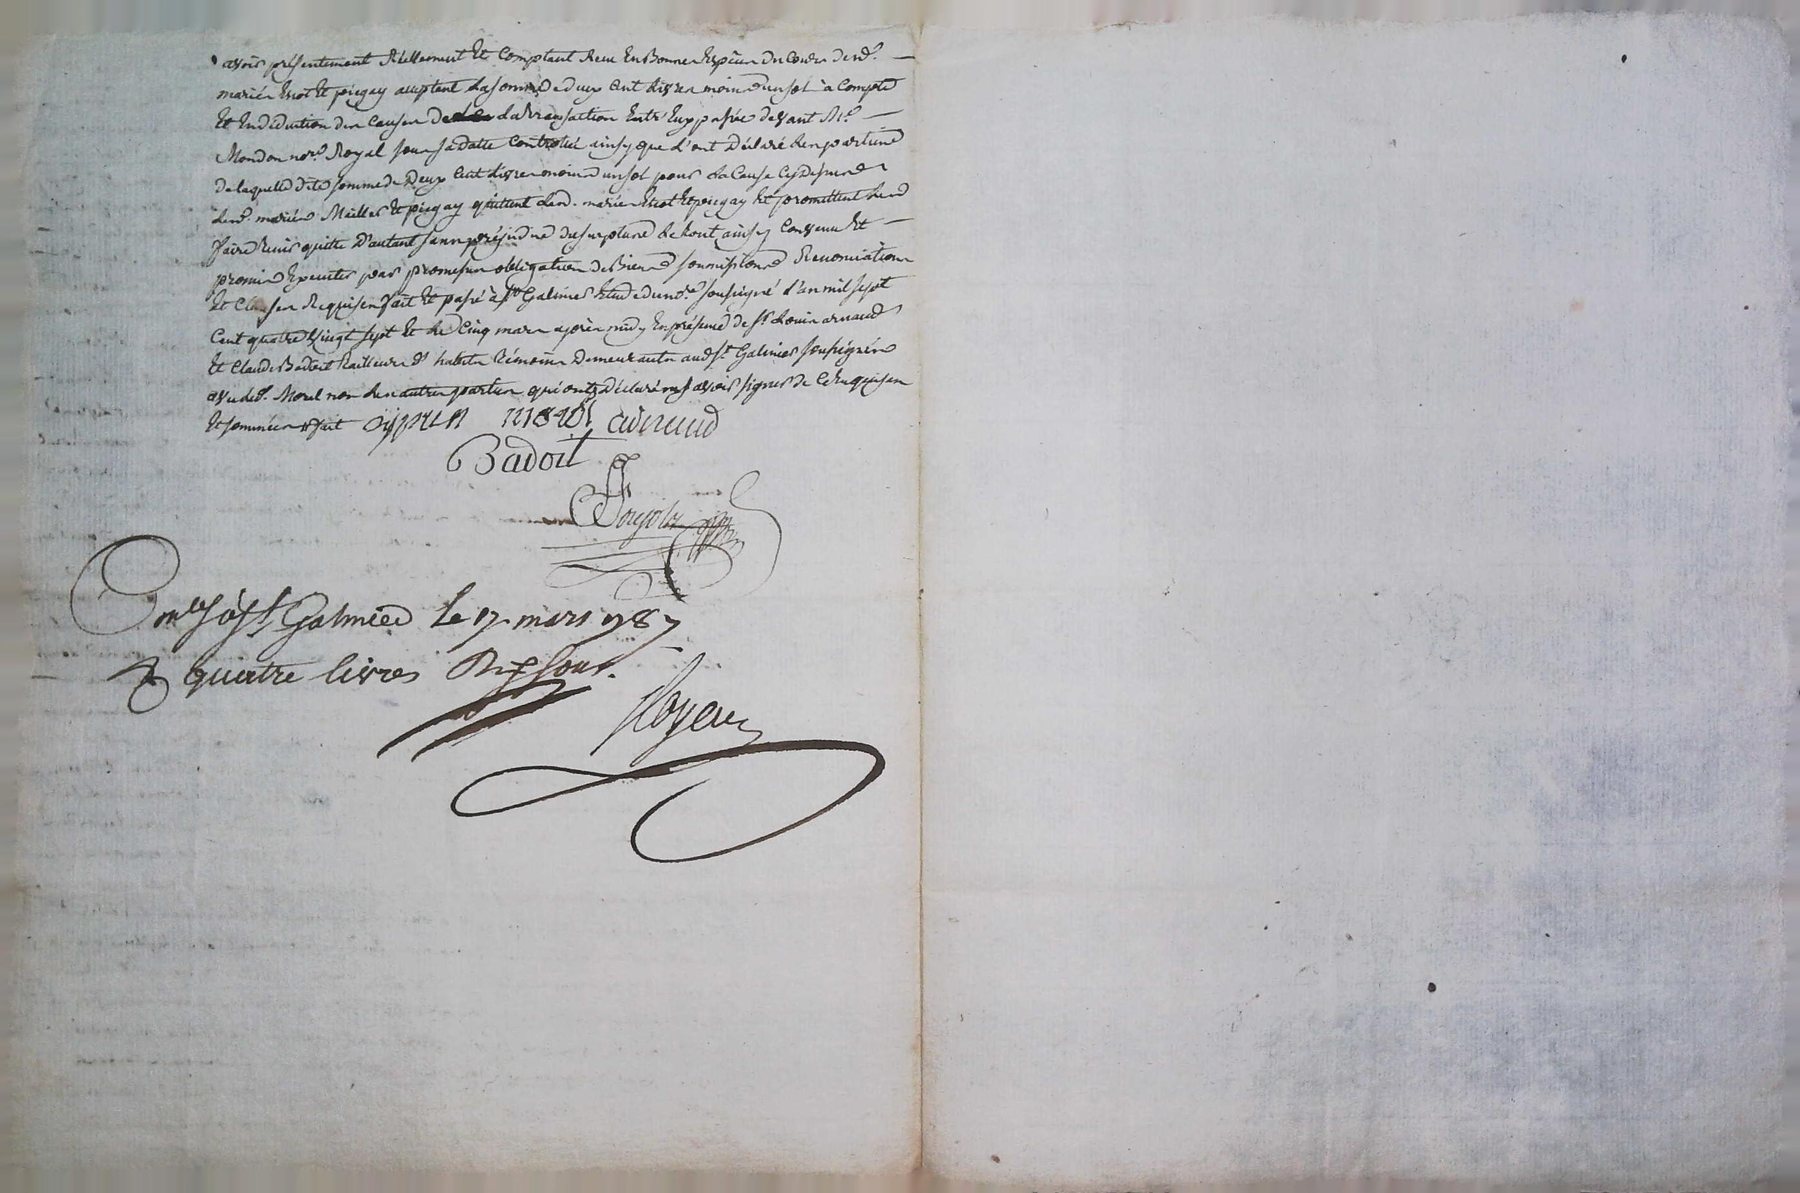 avoir présentement Réellement Et Comptant Reçu En Bonnes Espèces du Cours desd.
mariés Et pirgay acceptent La somme de deux Cent Livres moins un sol à Compte
Et En déduction des Causes de La transaction Entre Eux passée devant Me
Mondon nore Royal sous sa datte Controllée ainsy que l'ont déclaré Les parties
de laquelle dite somme de Deux Cent Livres moins un sol pour La Cause Cy dessus
lesd. mariés Et pirgay quittent lesd. mariés Et pirgay Et promettent Les
faire tenir quitte D'autant sans préjudice du surplus Le tout ainsy Convenu Et
promis Executer par promesses obligation de Biens soumissions Renonciations
Et Clauses Requises fait Et passé à St Galmier Etude du nore soussigné L'an mil sept
Cent quatre Vingt sept Et Le Cinq mars après midy En présence de Sr Louis arnaud
Et Claude Badoit tailleur d'habits témoins Demeurants aud St Galmier soussignés
avec led. Morel non Les autres parties qui ont déclaré ne savoir signer de Ce Enquises
Et sommées fait arnaud
Badoit
Conlé à St Galmier Le 17 mars 1787
R quatre livres dix sous.